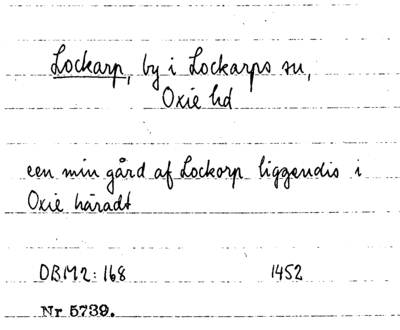 Lockarp, by i Lockarps sn,
Oxie hd
een min gård af Lockorp liggendis i
Oxie häradt
DBM2: 168 1452
Nr 5739.